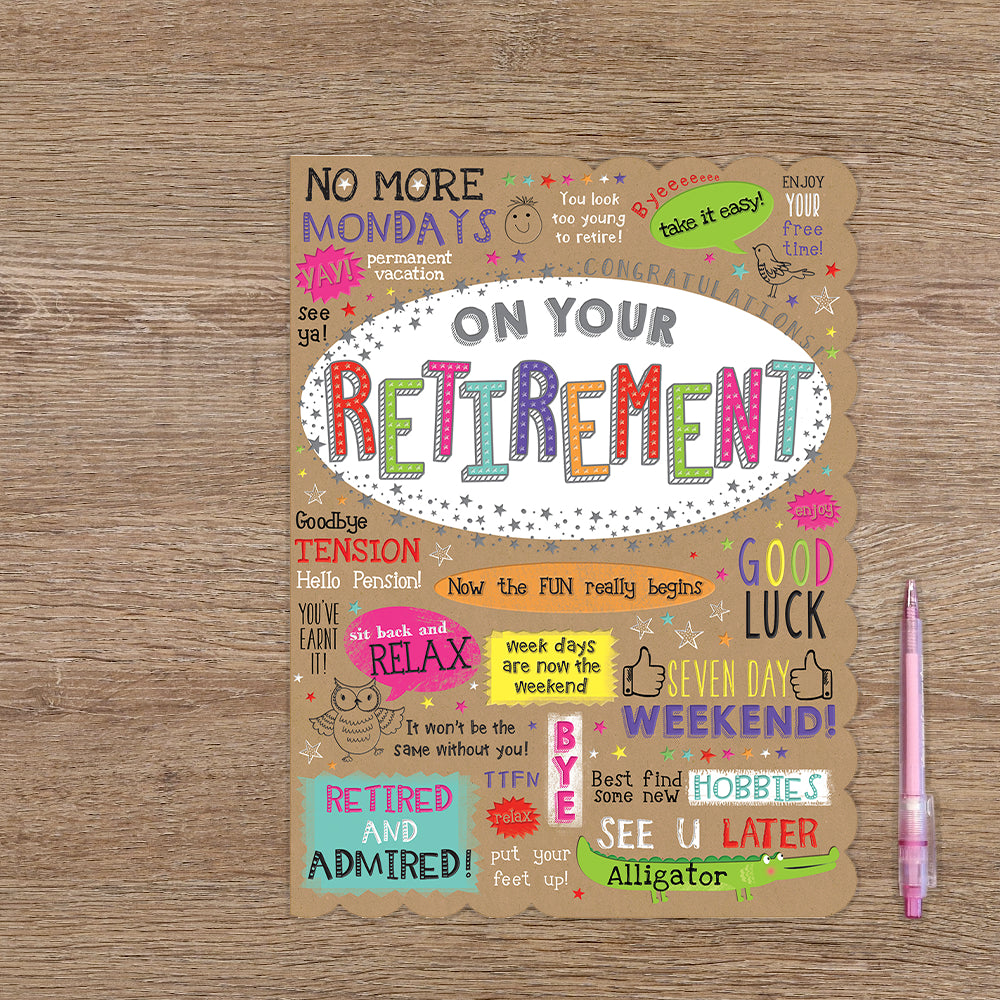 NO MORE
MONDAYS
You look
too young
to retire!
Byeeeeeee
take it easy!
ENJOY
YOUR
free
time!
YAY!
permanent
vacation
see
ya!
CONGRATULATIONS!
ON YOUR
RETIREMENT
Goodbye
TENSION
Hello Pension!
enjoy
GOOD
LUCK
Now the FUN really begins
YOU'VE
EARNT
IT!
sit back and
RELAX
week days
are now the
weekend
SEVEN DAY
WEEKEND!
It won't be the
same without you!
BYE
TTFN
Best find
some new
HOBBIES
RETIRED
AND
ADMIRED!
relax
put your
feet up!
SEE U LATER
Alligator